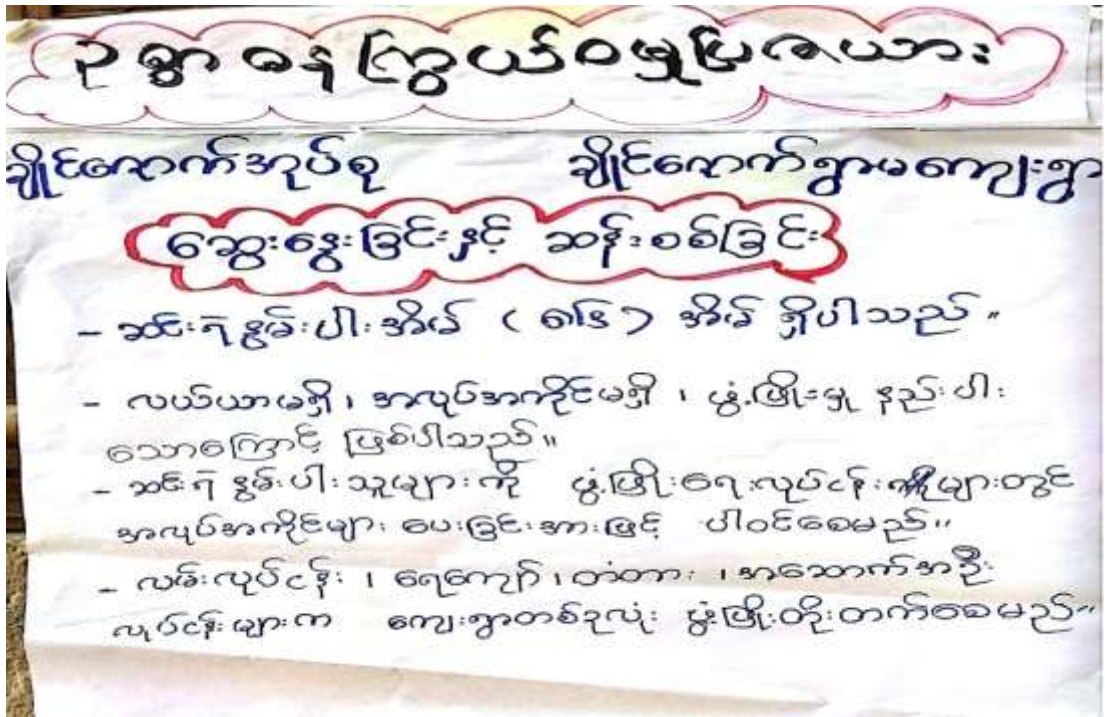 ဥစ္စာဓနကြွယ်ဝမှုပြဇယား
ချိုင်ကောက်အုပ်စု ချိုင်ကောက်ရွာမကျေးရွာ
ဆွေးနွေးခြင်းနှင့် ဆန်းစစ်ခြင်း
- ဆင်းရဲနွမ်းပါးအိမ် ( ) အိမ် ရှိပါသည်။
- လယ်ယာမရှိ၊ အလုပ်အကိုင်မရှိ ၊ ဖွံ့ဖြိုးမှု နည်းပါး
သောကြောင့် ဖြစ်ပါသည်။
- ဆင်းရဲ နွမ်းပါးသူများကို ဖွံ့ဖြိုးရေးလုပ်ငန်းများတွင်
အလုပ်အကိုင်များ ပေးခြင်းအားဖြင့် ပါဝင်စေမည်။
- လမ်းလုပ်ငန်း ၊ ရေကျော်၊ တံတား ၊ အဆောက်အဦး
လုပ်ငန်းများက ကျေးရွာတစ်ခုလုံး ဖွံ့ဖြိုးတိုးတက်စေမည်။